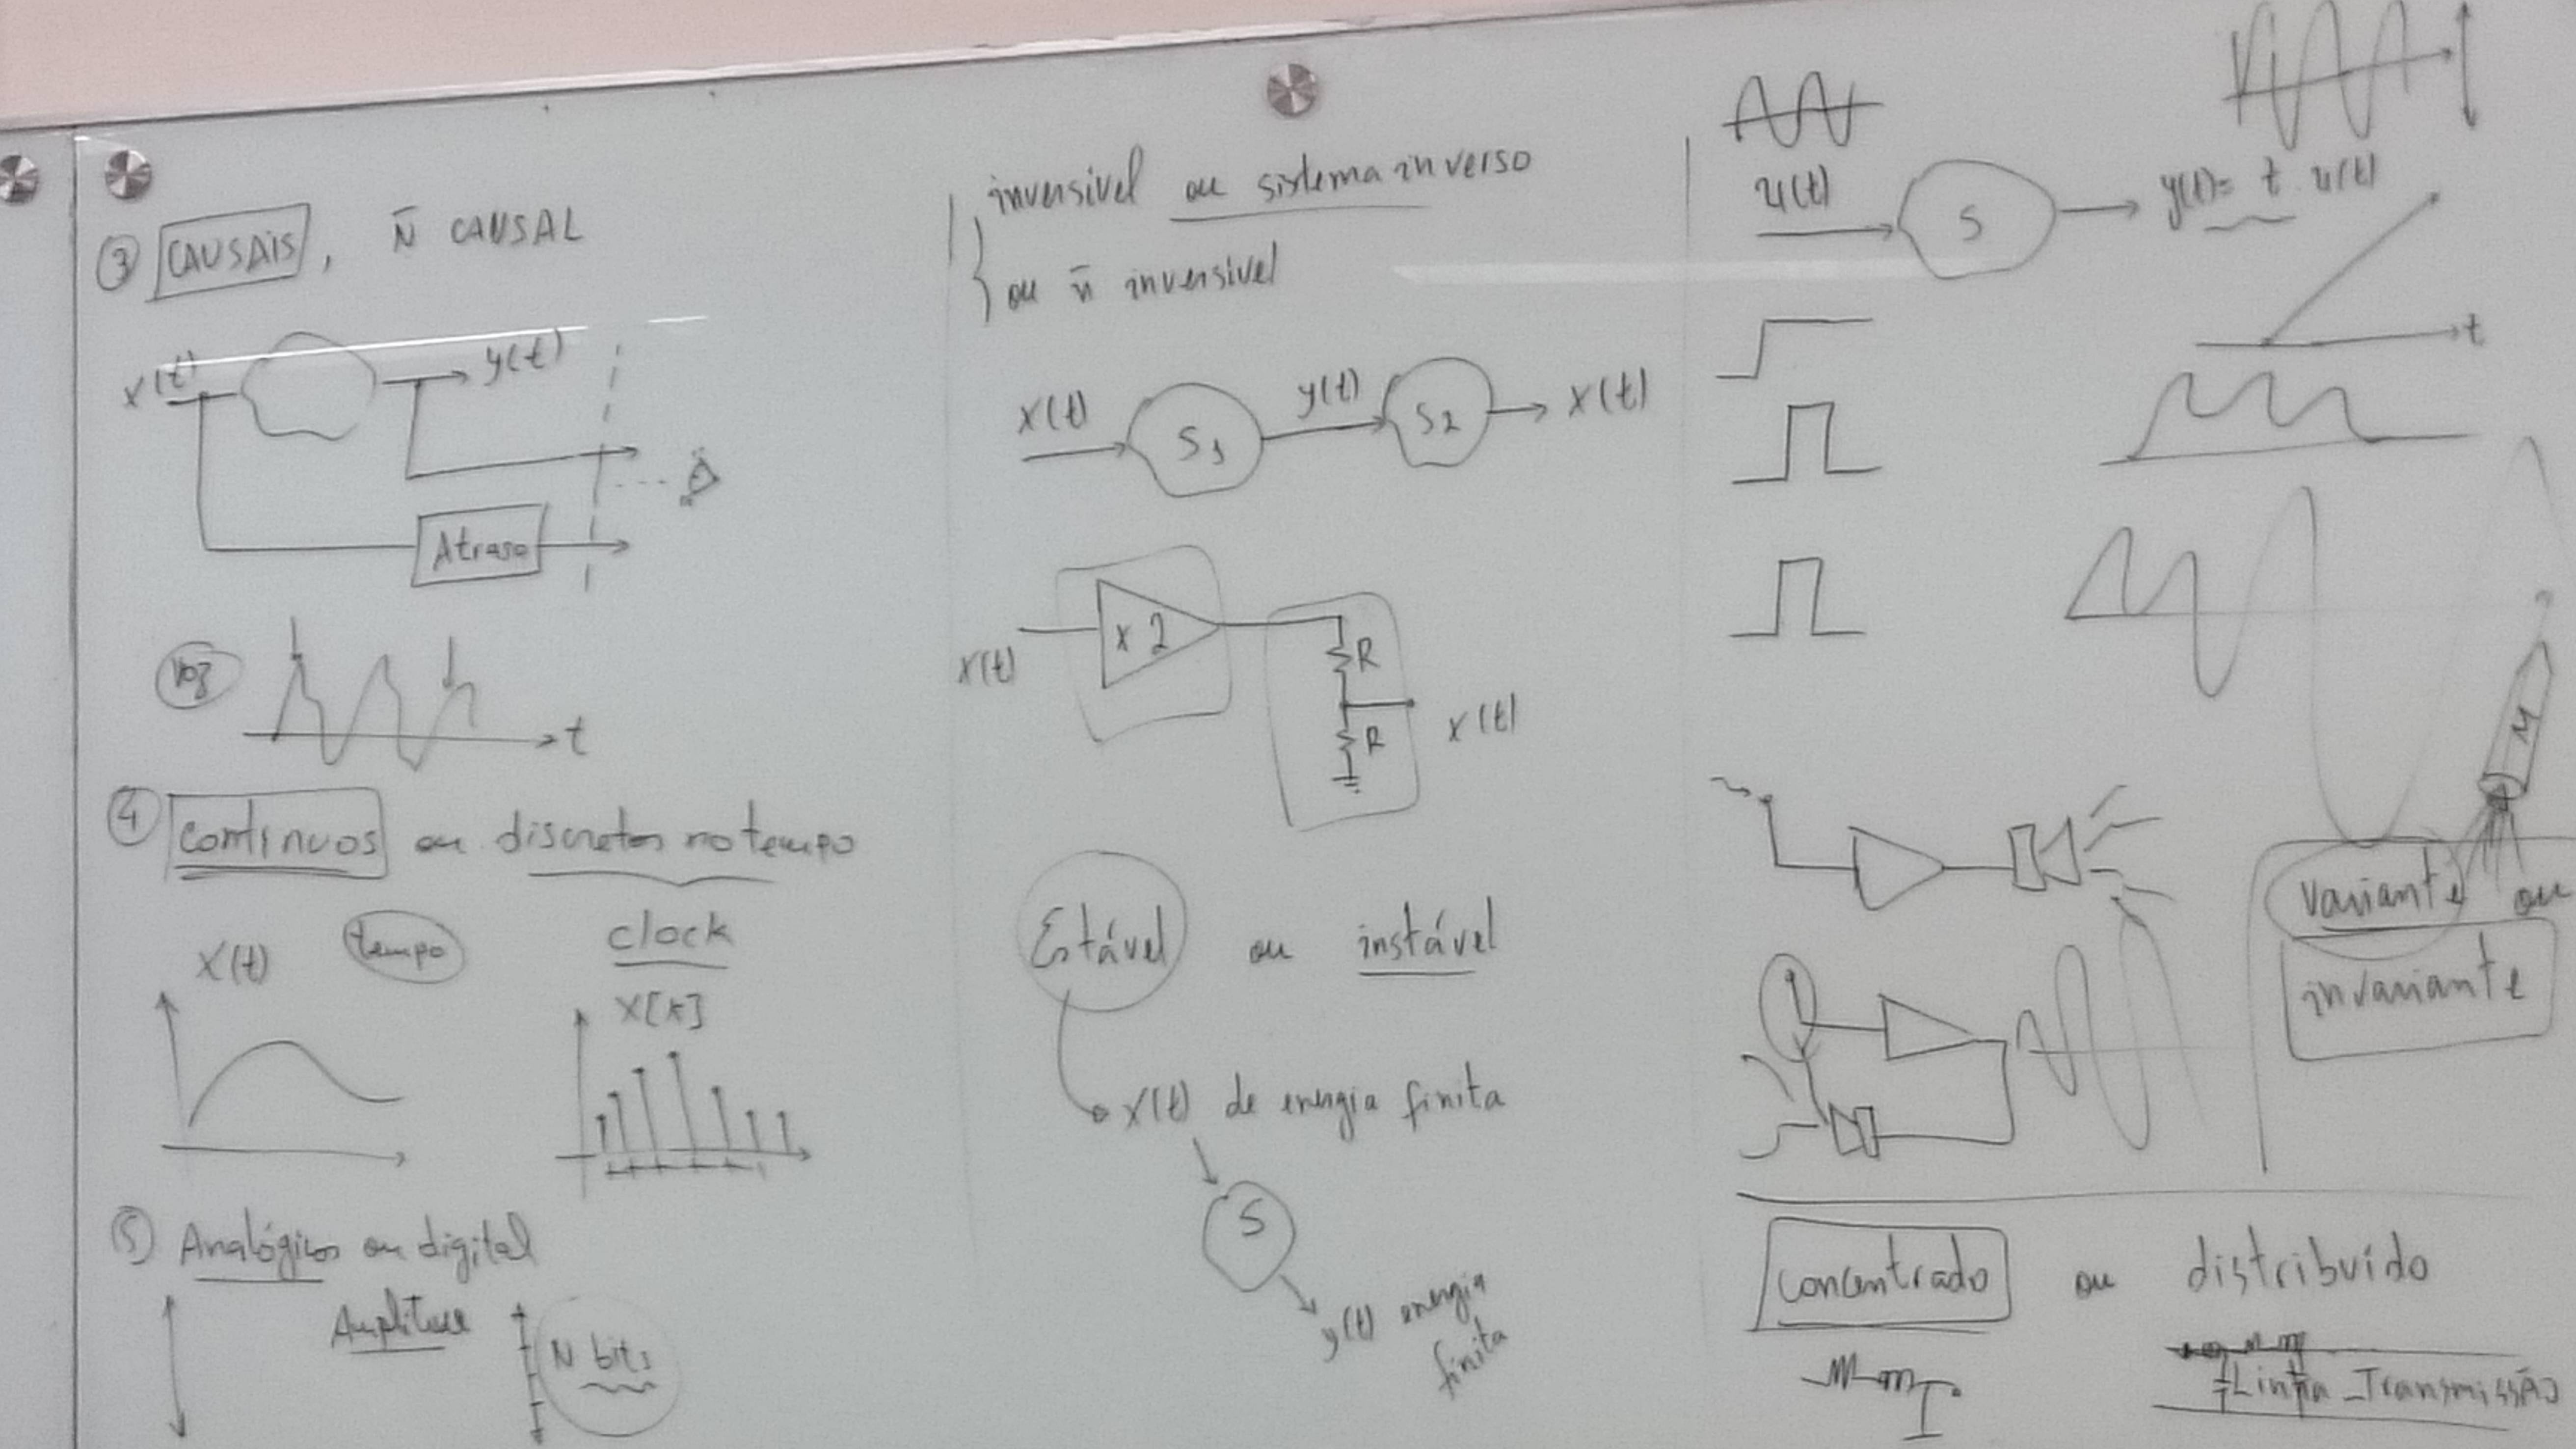 ③ CAUSAIS, Ñ CAUSAL
x(t)
y(t)
Atraso
voz
t
④ contínuos ou discretos no tempo
x(t)
tempo
clock
x[k]
⑤ Analógicos ou digital
Amplitude
N bits
inversível ou sistema inverso
ou ñ inversível
x(t)
S1
y(t)
S2
x(t)
x(t)
x 2
R
R
x(t)
Estável ou instável
x(t) de energia finita
S
y(t) energia
finita
u(t)
S
y(t)= t . u(t)
t
M
variante ou
invariante
concentrado ou distribuído
Linha Transmissão